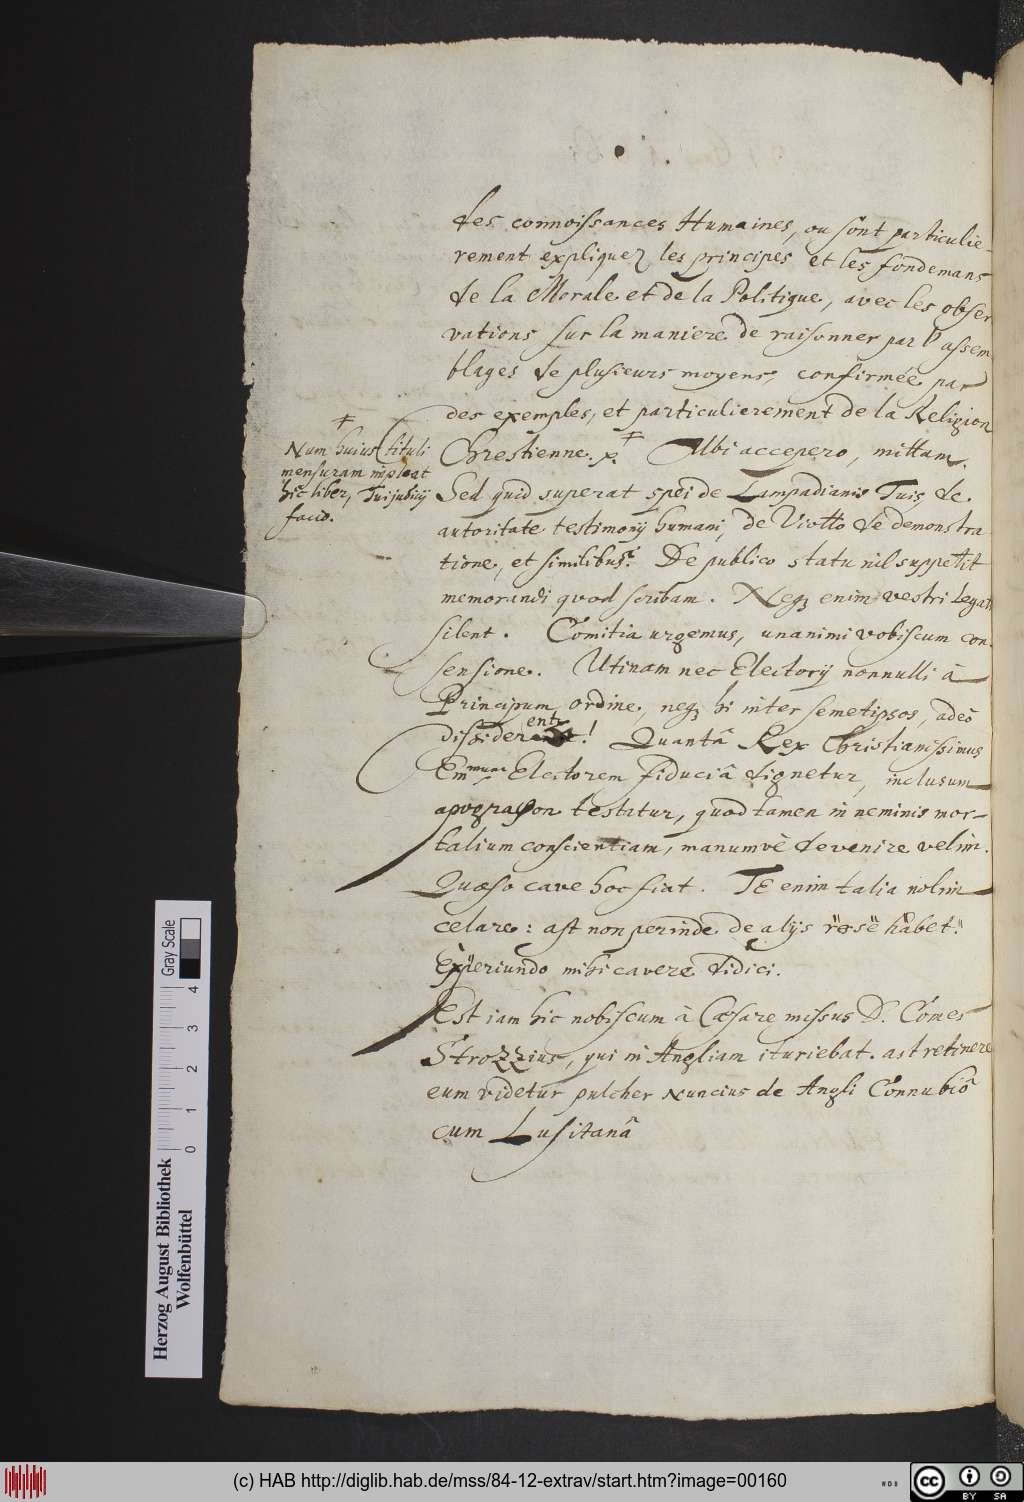 des connoissances Humaines, ou sont particulie-
rement expliquez les principes et les fondemans
de la Morale et de la Politique, avec les obser
vations sur la maniere de raisonner par l'assem
blages de plusieurs moyens, confirmée par
des exemples, et particulierement de la Religion
Chrestienne. Ubi accepero, mittam.
Sed quid superat spei de Lampadianis Tuis, de
autoritate testimonij humani, de Viotto de demonstra
tione, et similibus? De publico statu nil suppetit
memorandi quod scribam. Neq3 enim vestri Legati
silent. Comitia urgemus, unanimi vobiscum con
sensione. Utinam nec Electorij nonnulli à
Principum ordine, neq3 hi inter semetipsos, adeò
dissiderent! Quantâ Rex Christianissimus
Em mum Electorem fiduciâ dignetur, inclusum
apographon testatur, quod tamen in neminis mor-
talium conscientiam, manumvè devenire velim.
Quæso cave hoc fiat. TE enim talia nolim
celare: ast non perinde de alijs res se habet.
Experiundo mihi cavere didici.
Est iam hic nobiscum à Cæsare missus D. Comes
Strozzius, qui in Angliam ituriebat. ast retinere
eum videtur pulcher Nuncius de Angli Connubiô
cum Lusitanâ
Num huius tituli
mensuram impleat
hic liber, Tui judicij
facio.
Herzog August Bibliothek
Wolfenbüttel
Gray Scale
0 1 2 3 4
(c) HAB http://diglib.hab.de/mss/84-12-extrav/start.htm?image=00160
cc BY SA